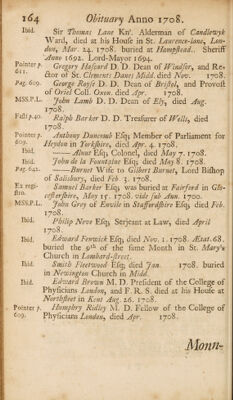 164 Obituary Anno 1708.
Ibid. Sir Thomas Lane Knᵗ. Alderman of Candlewyk
Ward, died at his House in St. Laurence-lane, Lon-
don, Mar. 24. 1708. buried at Hampstead. Sheriff
Anno 1692. Lord-Mayor 1694.
Pointer p. 611. Gregory Hascard D. D. Dean of Windsor, and Re-
ctor of St. Clement Danes Midd. died Nov. 1708.
Pag. 609. George Royse D. D. Dean of Bristol, and Provost
of Oriel Coll. Oxon. died Apr. 1708.
MSS.P.L. John Lamb D. D. Dean of Ely, died Aug.
1708.
Fasti p.40. Ralph Barker D. D. Treasurer of Wells, died
1708.
Pointer p. 609. Anthony Duncomb Esq; Member of Parliament for
Heydon in Yorkshire, died Apr. 4. 1708.
Ibid. Albus Esq; Colonel, died May 7. 1708.
Ibid. John de la Fountaine Esq; died May 8. 1708.
Pag. 642. Burnet Wife to Gilbert Burnet, Lord Bishop
of Salisbury, died Feb. 3. 1708.
Ex regi-
stro. Samuel Barker Esq; was buried at Fairford in Glo-
cestershire, May 15. 1708. vide sub Ann. 1700.
MSS.P.L. John Grey of Enville in Staffordshire Esq; died Feb.
1708.
Ibid. Philip Neve Esq; Serjeant at Law, died April
1708.
Ibid. Edward Fenwick Esq; died Nov. 1. 1708. Ætat. 68.
buried the 9ᵗʰ of the same Month in St. Mary's
Church in Lombard-street.
Ibid. Smith Fleetwood Esq; died Jan. 1708. buried
in Newington Church in Midd.
Ibid. Edward Brown M. D. President of the College of
Physicians London, and F. R. S. died at his House at
Northfleet in Kent Aug. 26. 1708.
Pointer p. 609. Humphry Ridley M. D. Fellow of the College of
Physicians London, died Apr. 1708.
Monu-